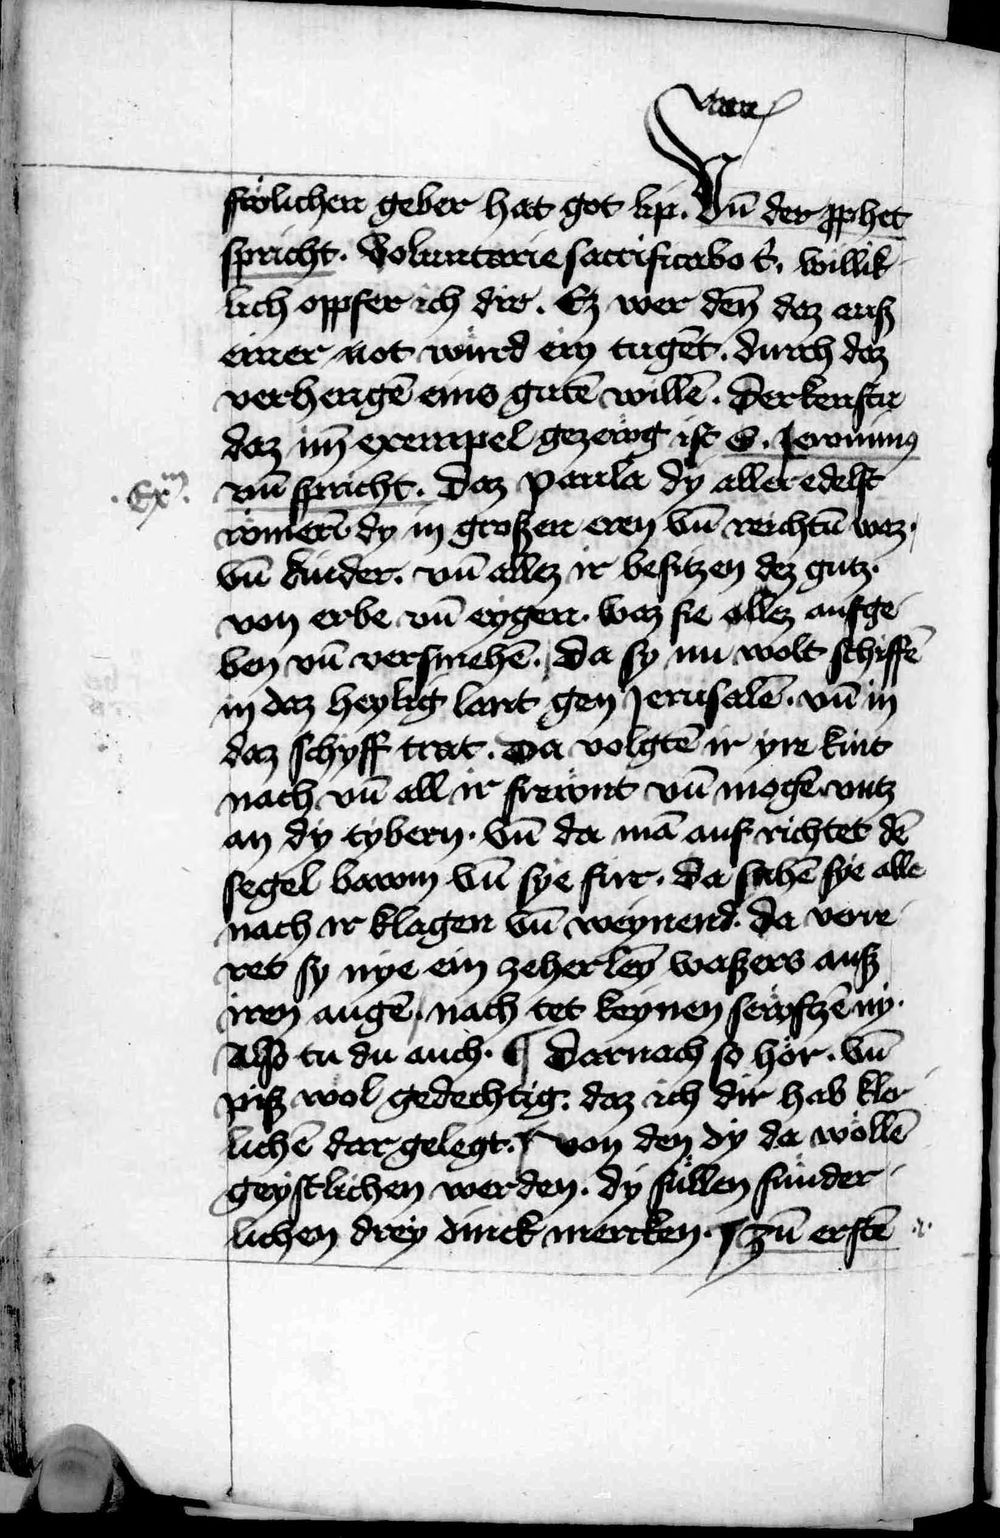 frölicherr geber hat got lip. Vn̄ der ꝓphet
spricht. Voluntarie sacrificabo t̄. willik
lich oppfer ich dir. Ez wer den̄ daz auß
einer not würd ein tugēt. durch daz
verhengē eins gutē willē. Derkenstu
daz im̄ exempel gezewg ist S. Jeronimꝰ
Exm. vn̄ spricht. Daz paula dy aller edelst
römerī dy in großerr eren vn̄ reichtū waz.
vn̄ kinder. vn̄ allez ir besitzen dez gutz.
von erbe vn̄ eygerr. waz sie allez aufge
ben vn̄ versmehē. Da sy nu wolt schiffē
in daz heylig lant gen Jerusalē. vn̄ in
daz schyff trat. Da volgtē ir yre kint
nach vn̄ all ir frewnt vn̄ mogē. vntz
an dy tybern. vn̄ da mā auf richtet dē
segel bawm vn̄ sye fur. Da sahē sye alle
nach ir klagen vn̄ weynend. Da verre
ret sy nye ein zeherleȳ waßers auß
iren augē. nach tet keynen sewftzē ny.
Also tu du auch. ¶ Darnach so hör. vn̄
piß wol gedechtig. daz ich dir hab kler
lichē dar gelegt. von den dy da wöllē
geystlichen werden. dy süllen sunder
lichen drey dinck mercken. zū erstē